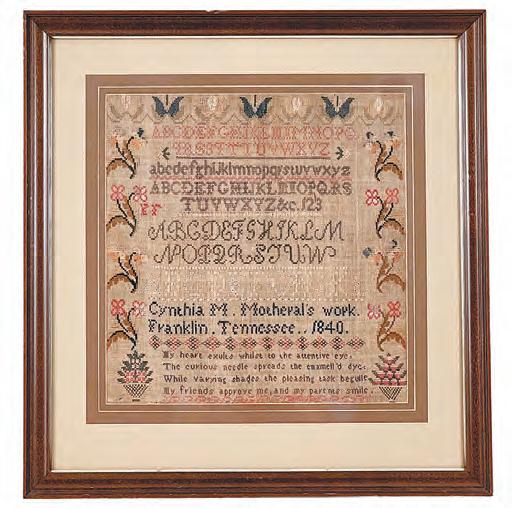 ABCDEFGHIKLMNOPQ
RSTUVWXYZ
abcdefghijklmnopqrstuvwxyz
ABCDEFGHIJKLMNOPQRS
TUVWXYZ&c.123
ABCDEFGHIKLM
NOPQRSTUW
Cynthia M. Motheral's work.
Franklin. Tennessee.. 1840.
My heart exults whilst to the attentive eye.
The curious needle spreads the enamell'd dye:
While varying shades the pleasing task beguile
My friends approve me, and my parents smile.